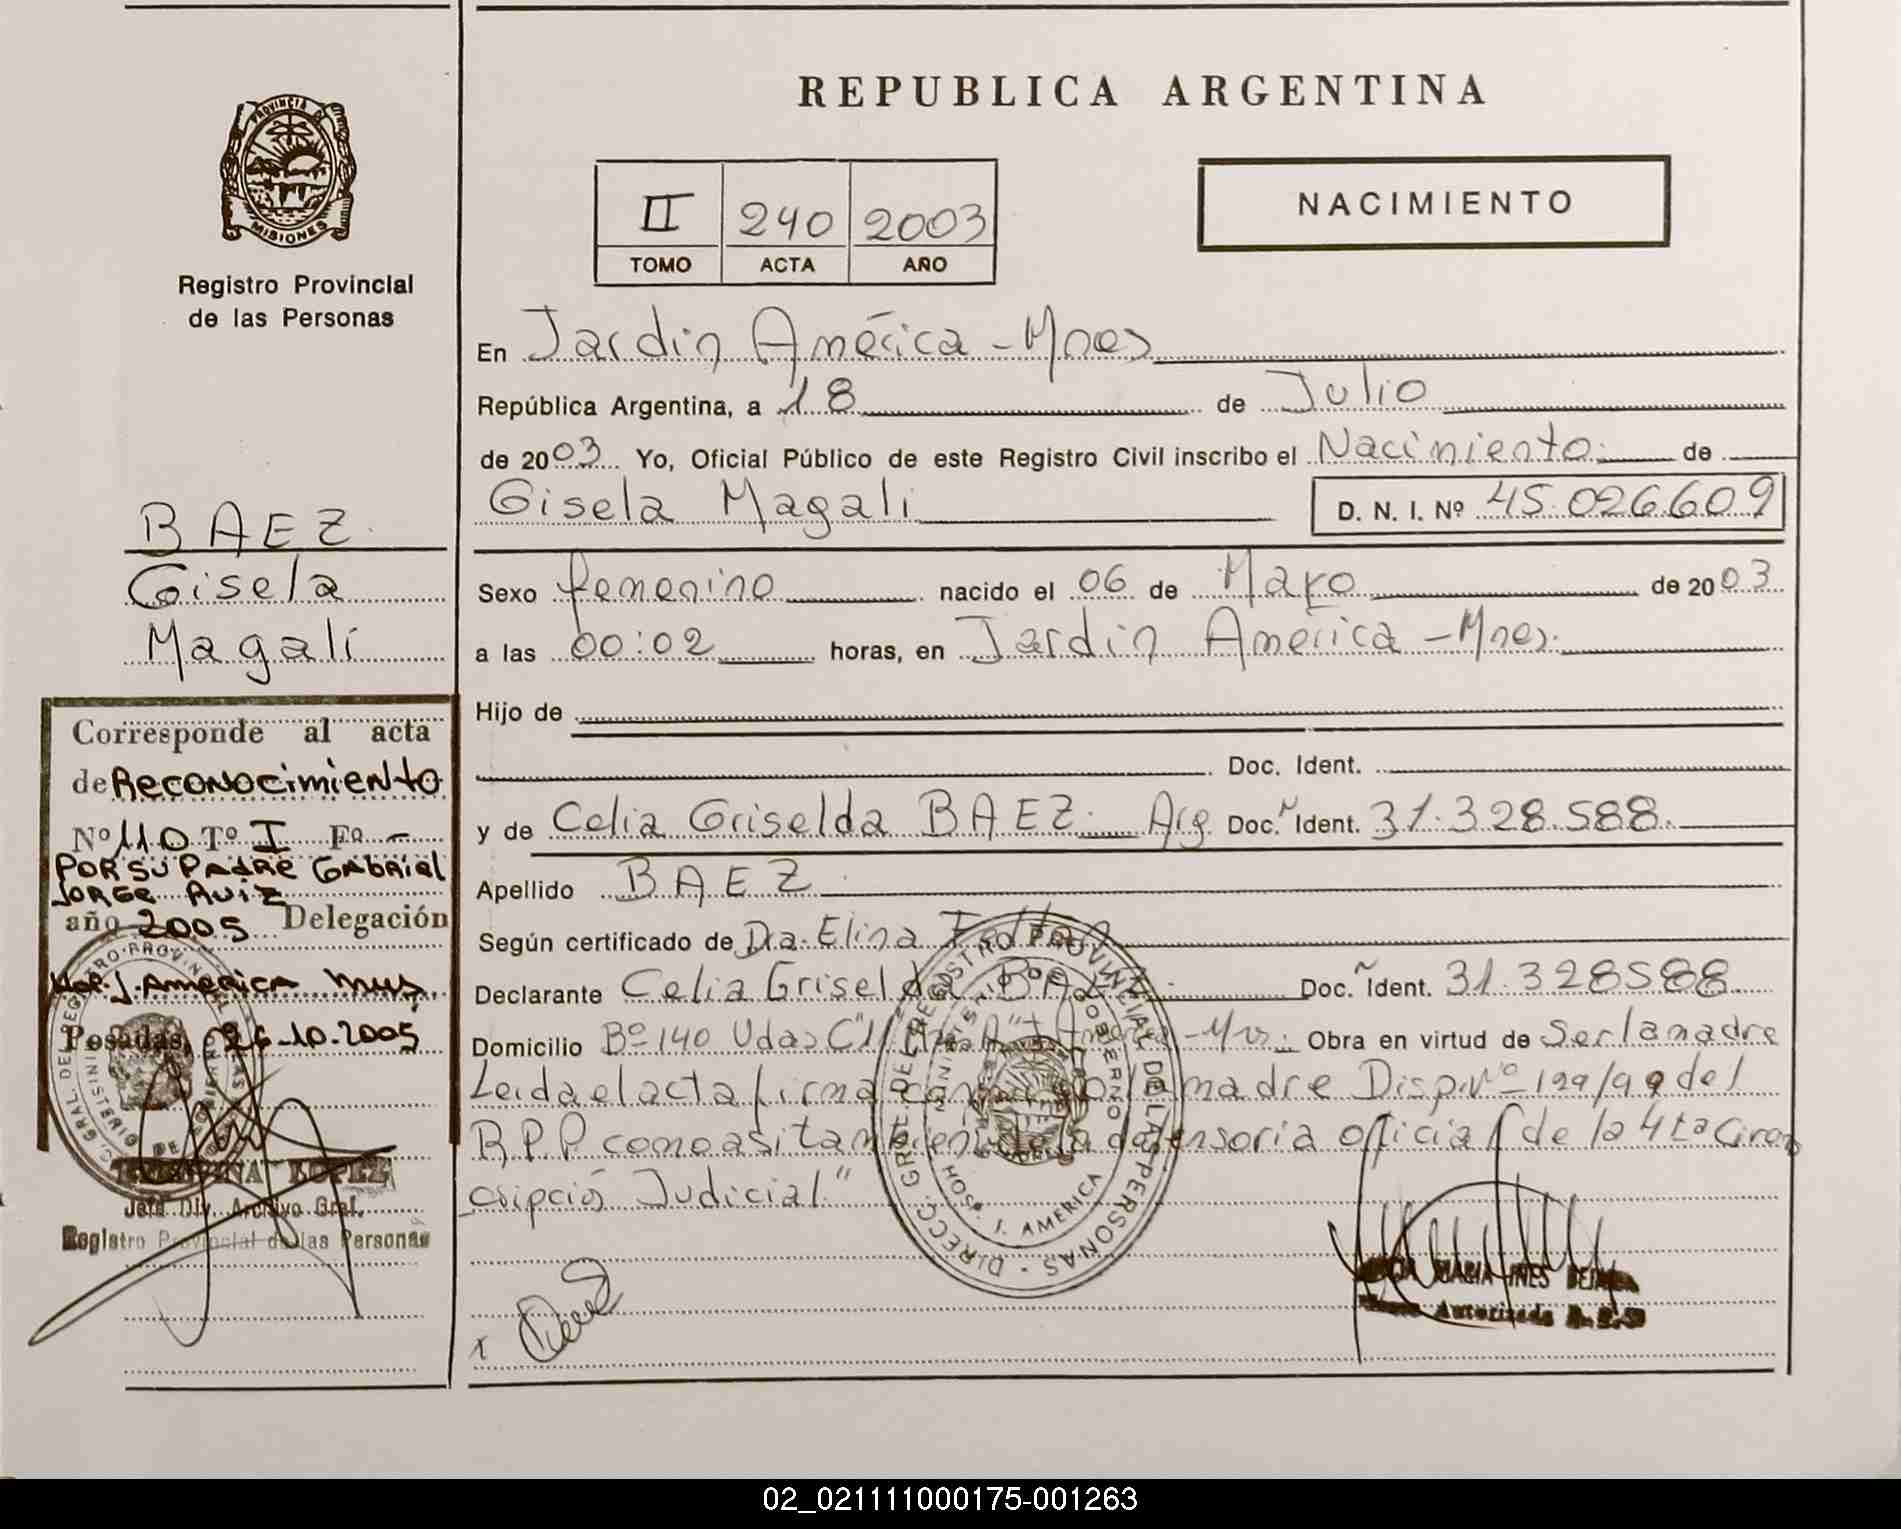 REPUBLICA ARGENTINA
PROVINCIA DE
MISIONES
Registro Provincial
de las Personas
NACIMIENTO
II 240 2003
TOMO ACTA AÑO
En Jardin América - Mnes
República Argentina, a 18 de Julio
de 2003 Yo, Oficial Público de este Registro Civil inscribo el Nacimiento de
Gisela Magali D. N. I. Nº 45.026.609
Sexo femenino nacido el 06 de Mayo de 2003
a las 00:02 horas, en Jardin América - Mnes.
Hijo de
Doc. Ident.
y de Celia Griselda BAEZ. Arg Doc. Ident. 31.328.588.
Apellido BAEZ
Según certificado de Dra. Elina
Declarante Celia Griselda BAEZ Doc. Ident. 31.328588
Domicilio Bº 140 Vdas C"11 Obra en virtud de Ser la madre
Leida el acta firma la madre Disp. Nº 199/99 del
R.P.P como asi tambien de la defensoria oficial de la 4ta Circuns
cripción Judicial."
x
BAEZ
Gisela
Magali
Corresponde al acta
de Reconocimiento
Nº 110 Tº I Fº -
POR SU PADRE GABRIEL
JORGE RUIZ
año 2005 Delegación
Hop. J. America mns.
Posadas, 26-10-2005
LOPEZ
Jefe Div. Archivo Gral.
Registro Provincial de las Personas
DIRECC. GRAL. DEL REGISTRO PROVINCIAL DE LAS PERSONAS
MINISTERIO DE GOBIERNO
HOSP. J. AMERICA
MARIA INES
Autorizada
02_021111000175-001263